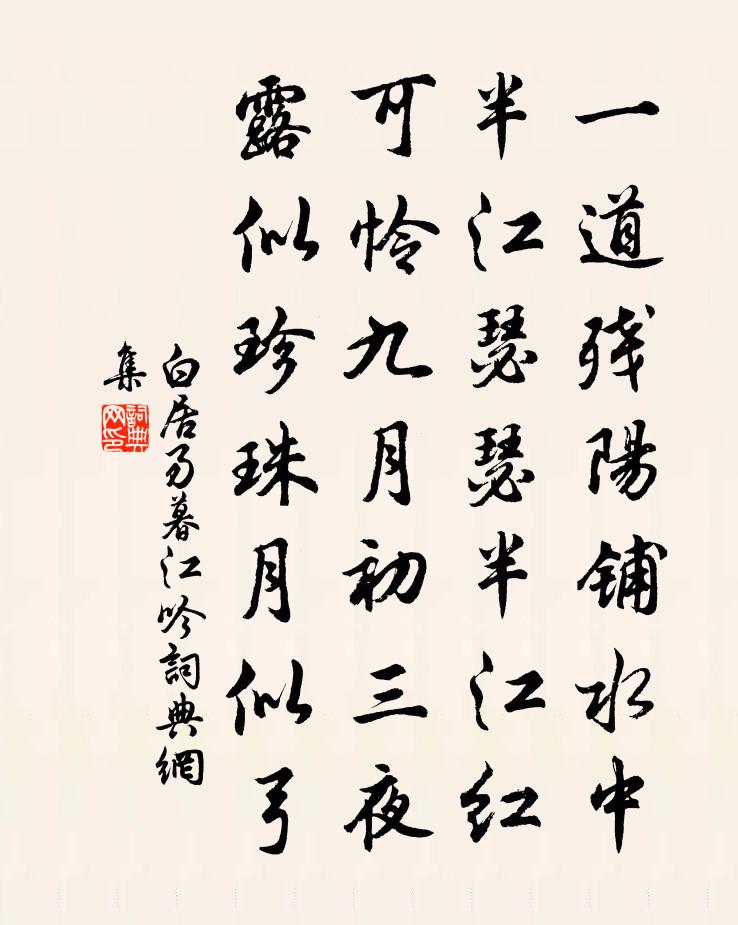 一道残陽铺水中
半江瑟瑟半江红
可怜九月初三夜
露似珍珠月似弓
白居易暮江吟詞典網
集
詞典
网印